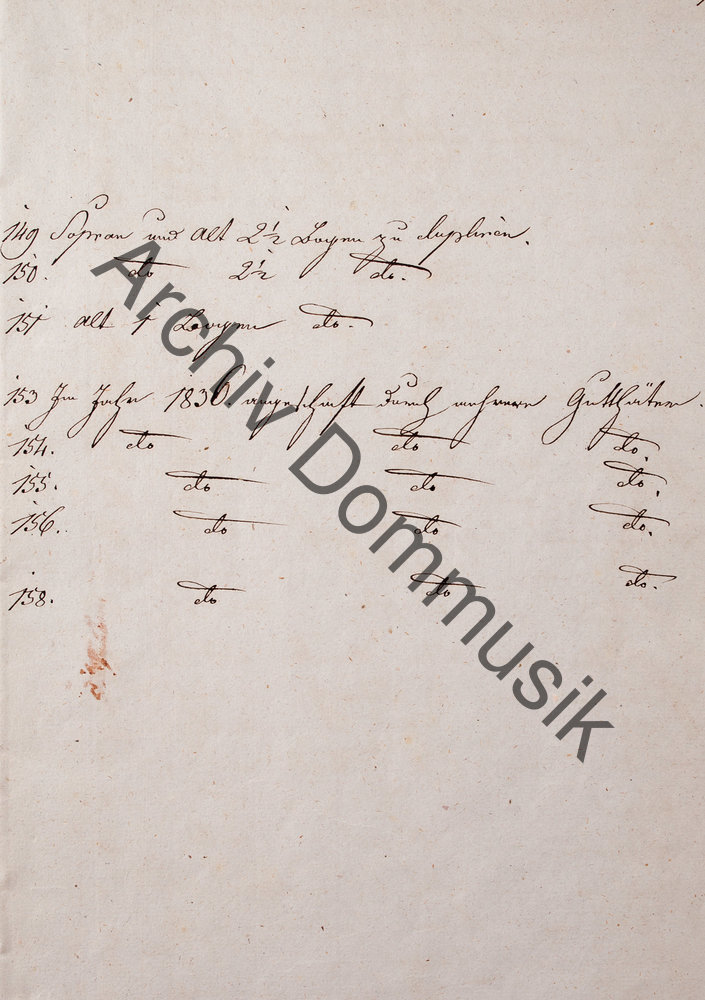 149 Sopran und Alt 2½ Bogen zu dupliren.
150. do 2½ do.
151 Alt 1 Bogen do.
153 Im Jahr 1836 angeschaft durch mehrere Gutthäter.
154. do do do.
155. do do do.
156. do do do.
158. do do do.
Archiv Dommusik